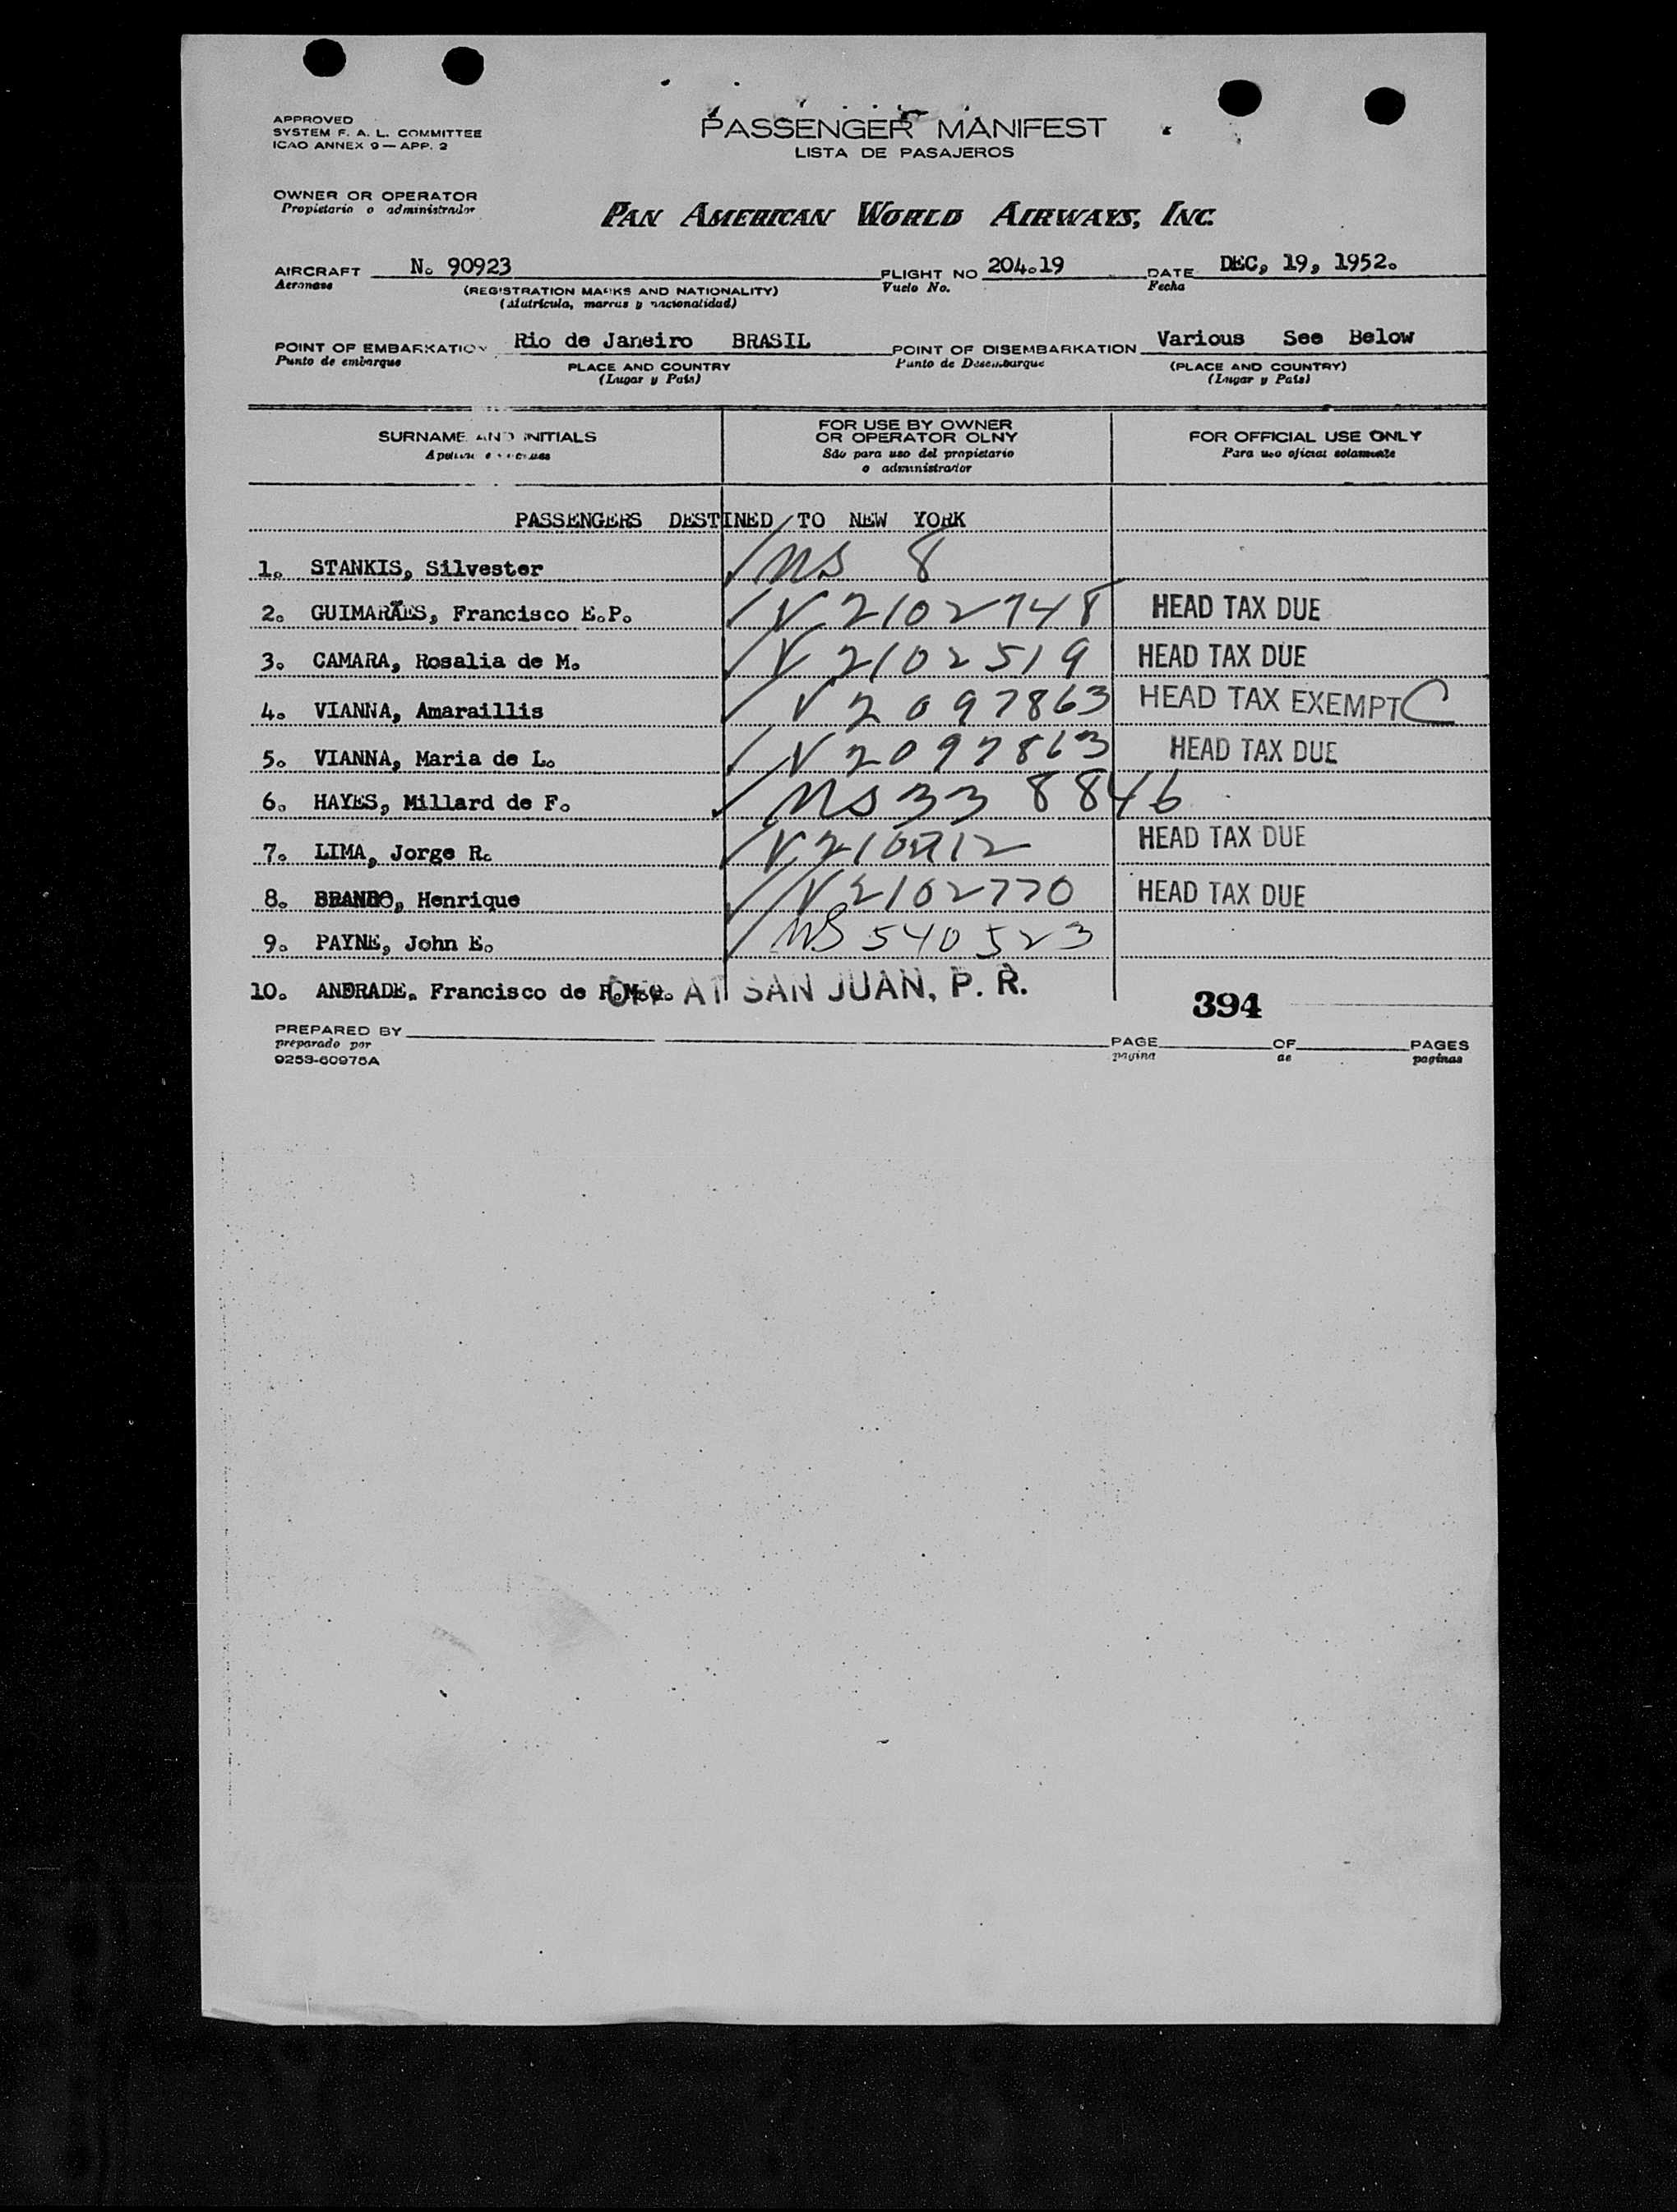 APPROVED
SYSTEM F. A. L. COMMITTEE
ICAO ANNEX 9 — APP. 2
PASSENGER MANIFEST
LISTA DE PASAJEROS
OWNER OR OPERATOR
Propietario o administrador
PAN AMERICAN WORLD AIRWAYS, INC.
AIRCRAFT N. 90923 FLIGHT NO 204.19 DATE DEC, 19, 1952.
Aeronave (REGISTRATION MARKS AND NATIONALITY) Vuelo No. Fecha
(Matrícula, marcas y nacionalidad)
POINT OF EMBARKATION Rio de Janeiro BRASIL POINT OF DISEMBARKATION Various See Below
Punto de embarque PLACE AND COUNTRY Punto de Desembarque (PLACE AND COUNTRY)
(Lugar y País) (Lugar y País)
SURNAME AND INITIALS
FOR USE BY OWNER
OR OPERATOR OLNY
São para uso del propietario
o administrador
FOR OFFICIAL USE ONLY
Para uso oficial solamente
PASSENGERS DESTINED TO NEW YORK
1. STANKIS, Silvester NS 8
2. GUIMARÃES, Francisco E.P. V 2102748 HEAD TAX DUE
3. CAMARA, Rosalia de M. V 2102519 HEAD TAX DUE
4. VIANNA, Amaraillis V 2097863 HEAD TAX EXEMPT C
5. VIANNA, Maria de L. V 2097863 HEAD TAX DUE
6. HAYES, Millard de F. NS 33 8846
7. LIMA, Jorge R. HEAD TAX DUE
8. Henrique V 2102770 HEAD TAX DUE
9. PAYNE, John E. NS 540523
10. ANDRADE, Francisco de OFF AT SAN JUAN, P. R.
394
PREPARED BY PAGE OF PAGES
preparado por pagina de paginas
9253-60975A